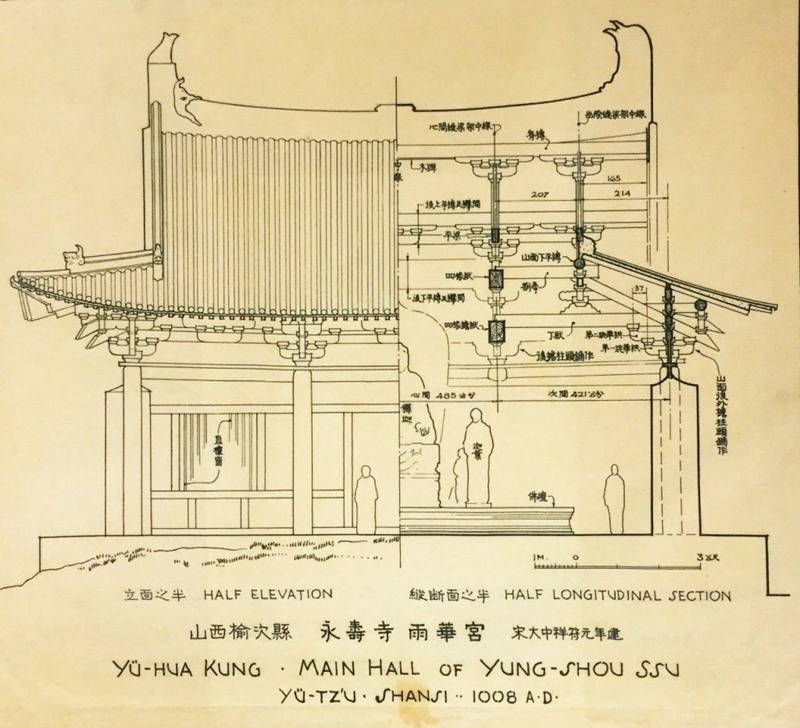 岳殿縫梁架中線
心間縫梁架中線
脊槫
中線
替木
165
207
214
後上平槫及襻間
平梁
山面下平槫
四椽栿
劄牽
後下平槫及襻間
37
四椽檐栿
丁栿
第二跳華栱
第一跳華栱
後檐柱頭鋪作
山面後外檐柱頭鋪作
心間 485公分
次間 421公分
直欞窗
釋迦
迦葉
佛壇
1M. 0 3公尺
立面之半 HALF ELEVATION
縱斷面之半 HALF LONGITUDINAL SECTION
山西榆次縣 永壽寺雨華宮 宋大中祥符元年建
YÜ-HUA KUNG · MAIN HALL OF YUNG-SHOU SSU
YÜ-TZ'U · SHANSI ·· 1008 A·D·